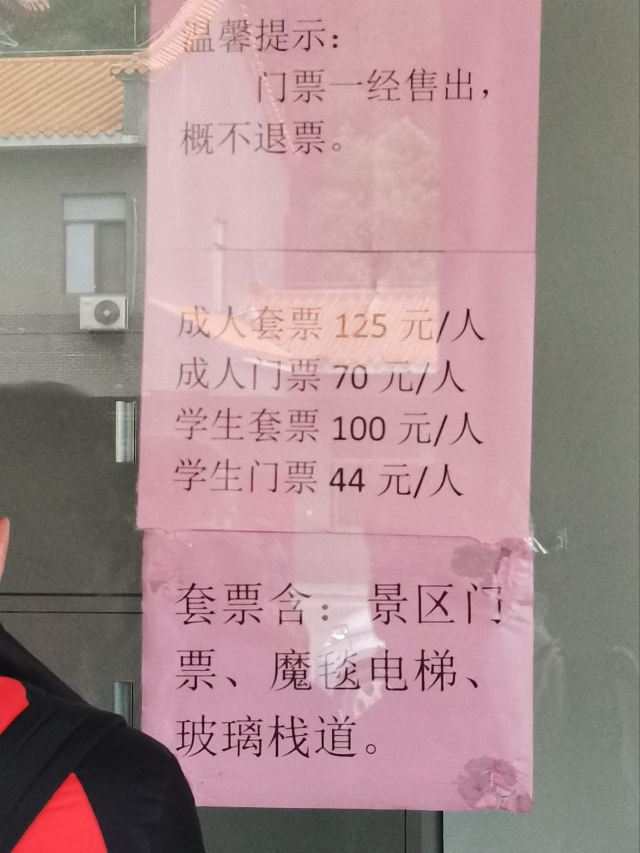 温馨提示：
门票一经售出，
概不退票。
成人套票 125 元/人
成人门票 70 元/人
学生套票 100 元/人
学生门票 44 元/人
套票含：景区门
票、魔毯电梯、
玻璃栈道。